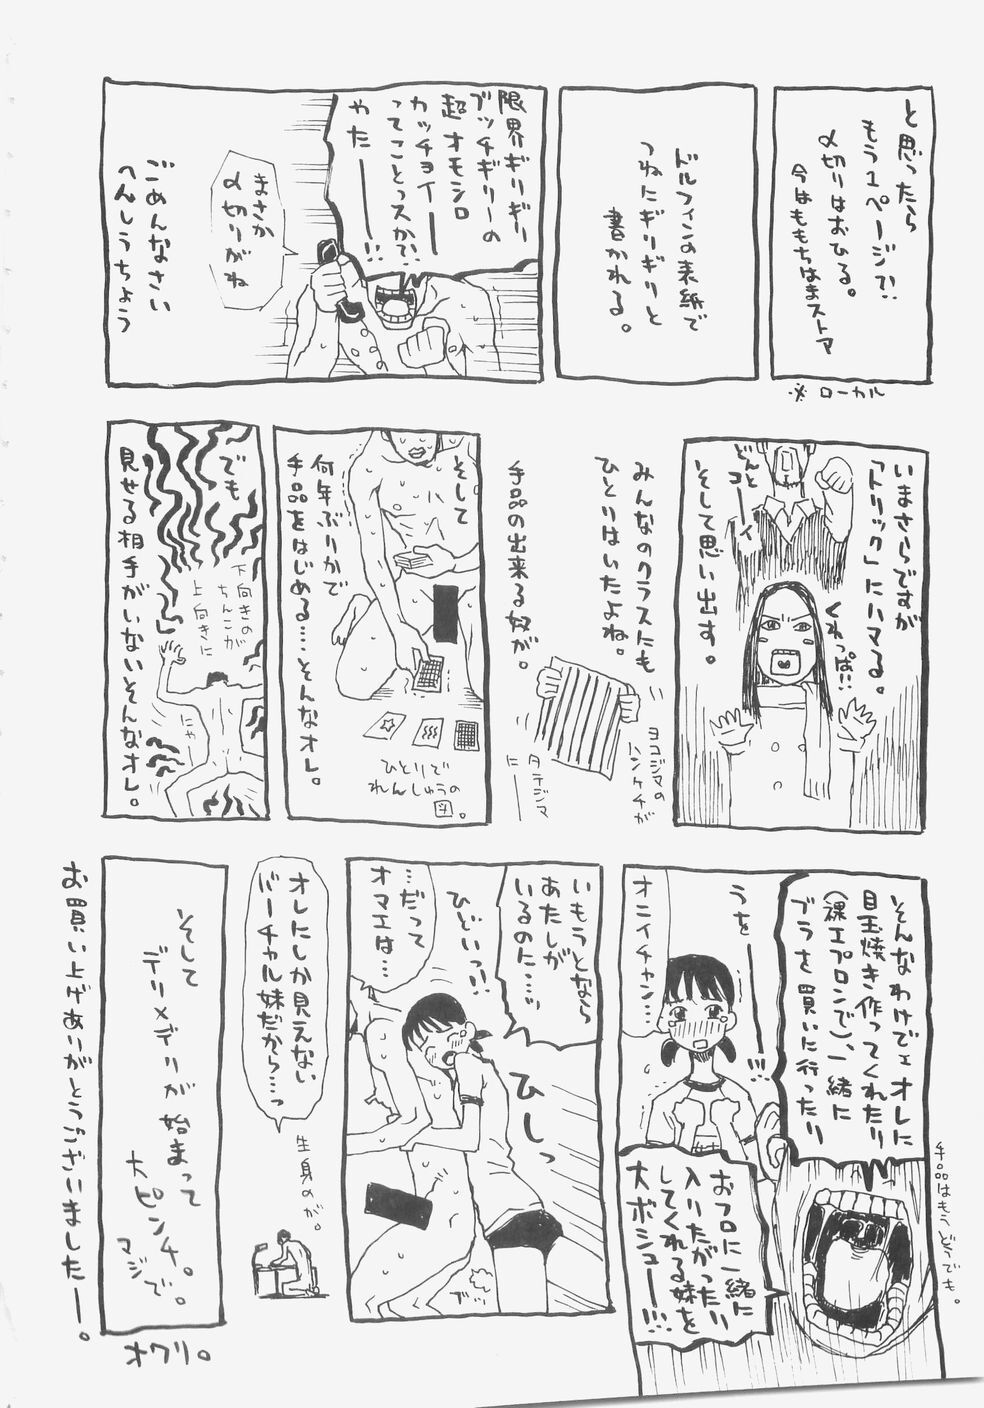 と思ったら
もう1ページ?!
〆切りはおひる。
今はももちはまストア
※ローカル
ドルフィンの表紙で
つねにギリギリと
書かれる。
限界ギリギリ
ブッチギリーの
超オモシロ
カッチョイーー
ってことっスか?!
やたーーー!!
まさか
〆切りがね
ごめんなさい
へんしうちょう
いまさらですが
「トリック」にハマる。
そして思い出す。
どんと
コーイ
くわっぱ!!
みんなのクラスにも
ひとりはいたよね。
手品の出来る奴が。
ヨコジマの
ハンケチが
タテジマ
にーー
そして
何年ぶりかで
手品をはじめる…そんなオレ。
ひとりで
れんしゅうの
図。
でも
見せる相手がいないそんなオレ。
下向きの
ちんこが
上向きに
にゃ
そんなわけでェオレに
目玉焼き作ってくれたり
(裸エプロンで)、一緒に
ブラを買いに行ったり
おフロに一緒に
入りたがったり
してくれる妹を
大ボシューー!!!
うをーーー!!!
オニイチャン…
手品はもうどうでも。
いもうとなら
あたしが
いるのに…っ
ひどいっ!!
…だって
オマエは…
ひしっ
オレにしか見えない
バーチャル妹だから…っ
生身のが。
そして
デリメデリが始まって
大ピンチ。
マジで。
オワリ。
お買い上げありがとうございましたー。